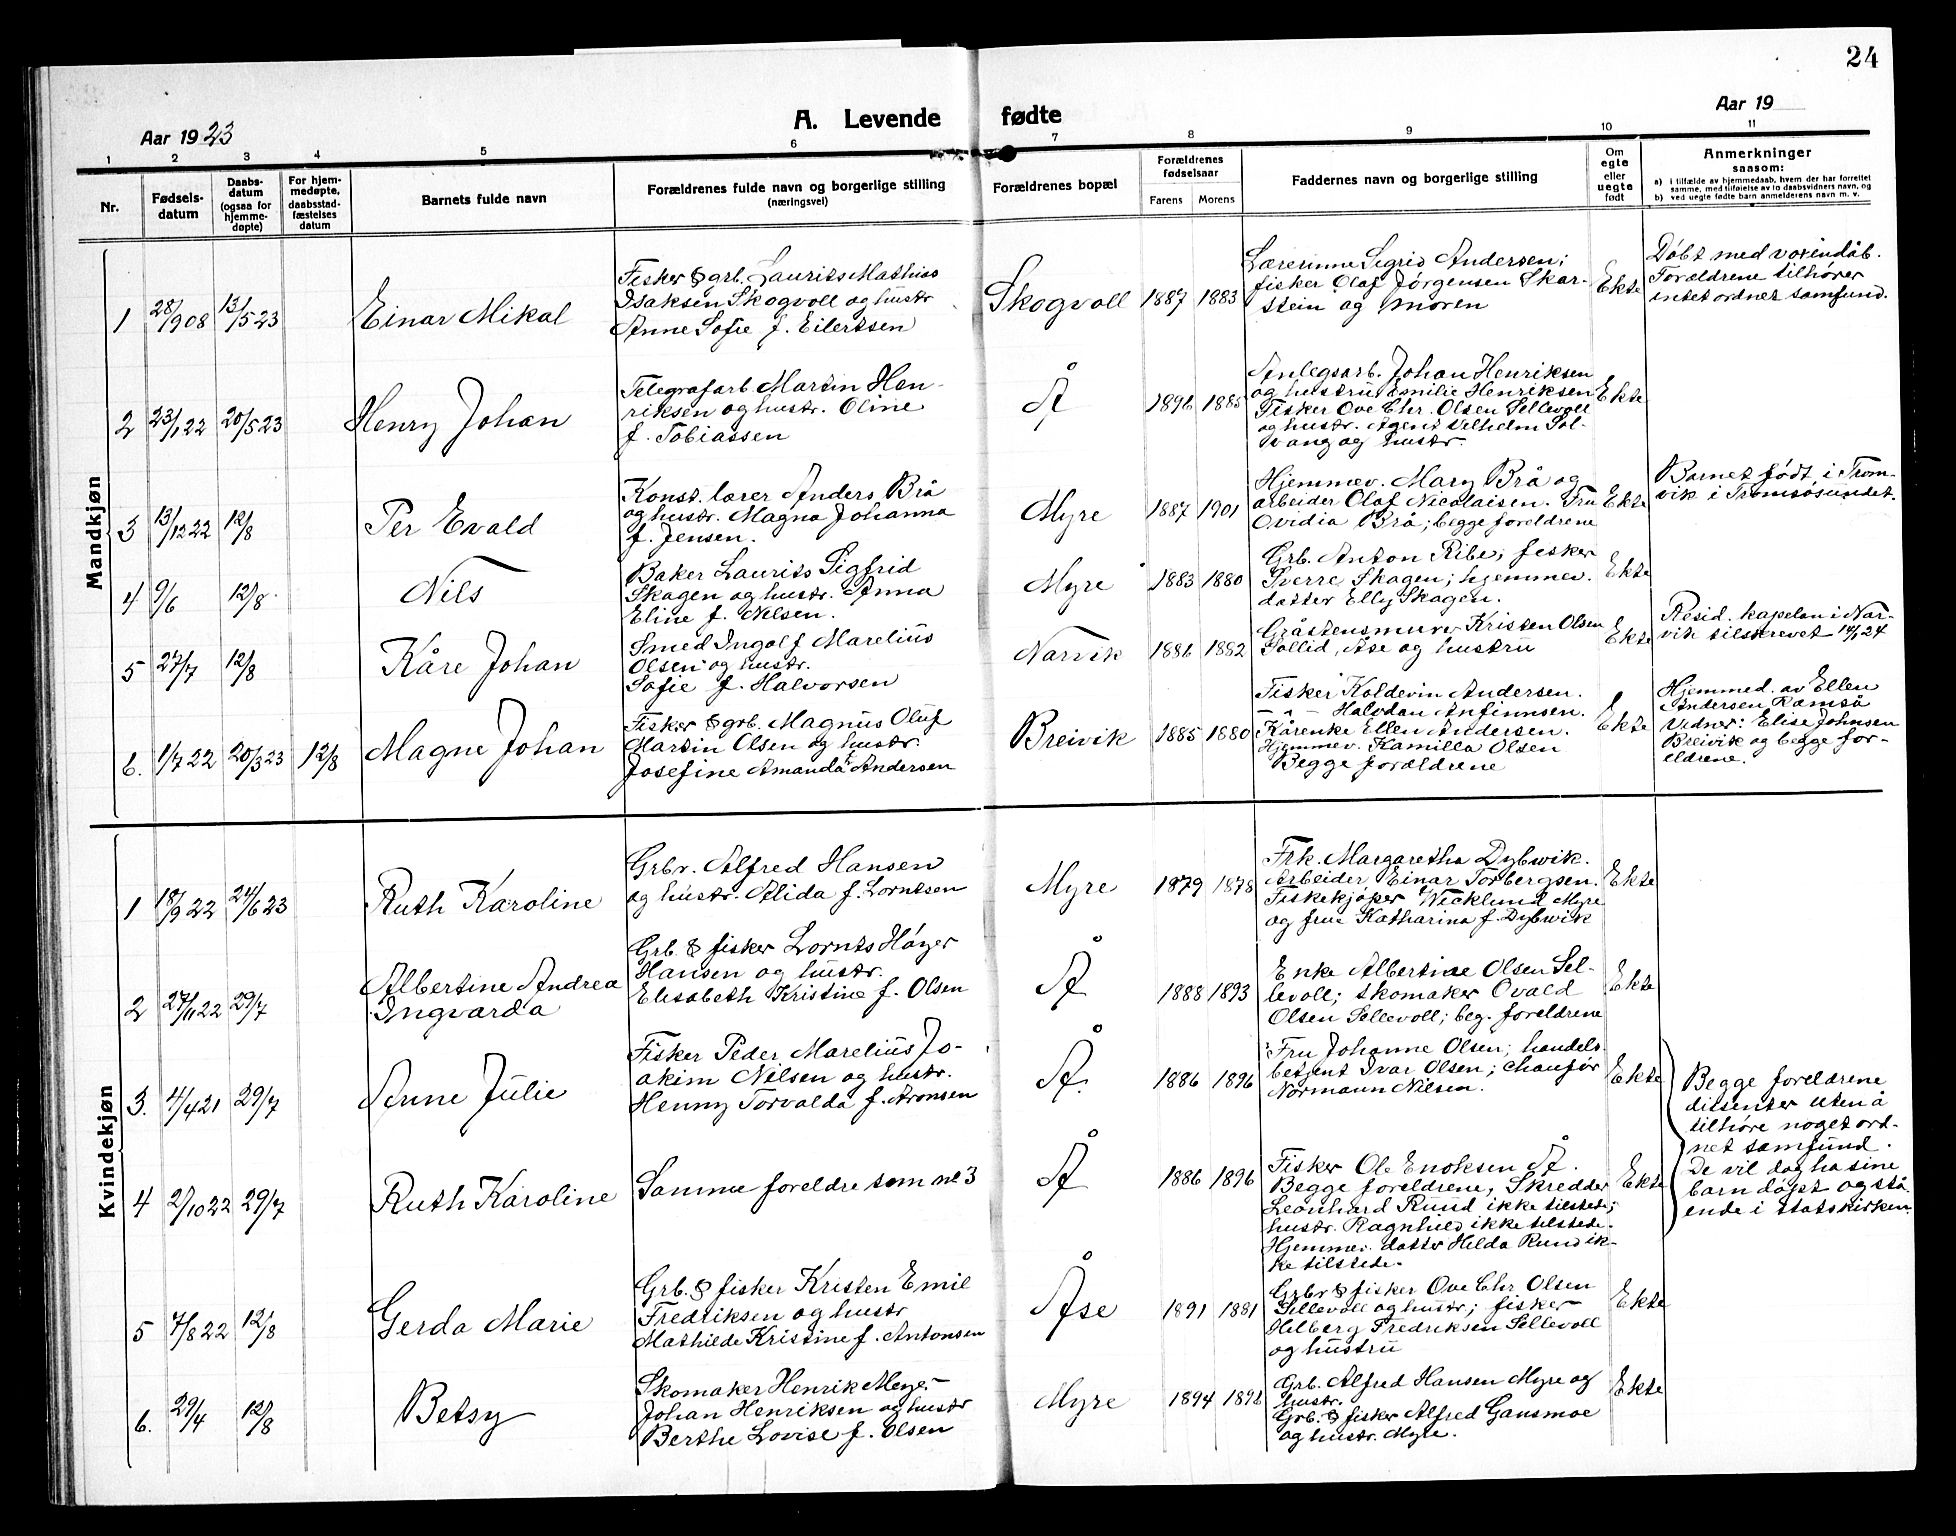 24
Aar 1923
A. Levende fødte
Aar 19
1 2 3 4 5 6 7 8 9 10 11
Nr.
Fødsels-
datum
Daabs-
datum
(ogsaa for
hjemme-
døpte)
For hjem-
medøpte,
daabsstad-
fæstelses
datum
Barnets fulde navn
Forældrenes fulde navn og borgerlige stilling
(næringsvei)
Forældrenes bopæl
Forældrenes
fødselsaar
Farens Morens
Faddernes navn og borgerlige stilling
Om
egte
eller
uegte
født
Anmerkninger
saasom:
a) i tilfælde av hjemmedaab, hvem der har forrettet
samme, med tilføielse av to daabsvidners navn, og
b) ved uegte fødte barn anmelderens navn m. v.
Mandkjøn
1 28/9 08 13/5 23
Einar Mikal
Fisker & grb. Laurits Mathias
Isaksen Skogvoll og hustr
Anne Sofie f. Eilertsen
Skogvoll 1887 1883
Lærerinne Sigrid Andersen;
fisker Olaf Jørgensen Skar-
stein og moren
Ekte
Døbt med voxindåb.
Forældrene tilhører
intet ordnet samfund.
2 23/1 22 20/5 23
Henry Johan
Telegrafarb. Martin Hen-
riksen og hustr. Oline
f. Tobiassen
Å 1896 1885
Anlegsarb. Johan Henriksen
og hustru Emilie Henriksen
Fisker Ove Chr. Olsen Sellevoll
og hustr. Agent Vilhelm Sol-
vang og hustr.
Ekte
3 13/12 22 12/8
Per Evald
Konst. lærer Anders Brå
og hustr. Magna Johanna
f. Jensen.
Myre 1887 1901
Hjemmev. Mary Brå og
arbeider Olaf Nicolaisen. Fru
Ovidia Brå; begge foreldrene
Ekte
Barnet født i Trom-
vik i Tromsøsundet.
4 9/6 12/8
Nils
Baker Laurits Sigfrid
Skagen og hustr. Anna
Eline f. Nilsen.
Myre 1883 1880
Grb. Anton Ribe; fisker
Sverre Skagen; hjemmev.
datter Elly Skagen.
Ekte
5 27/7 12/8
Kåre Johan
Smed Ingolf Marelius
Olsen og hustr.
Sofie f. Halvorsen
Narvik 1886 1882
Gråstensmurer Kristen Olsen
Sollid, Åse og hustru
Ekte
Resid. kapelan i Nar-
vik tilskrevet 14/1 24
6. 1/7 22 20/3 23 12/8
Magne Johan
Fisker & grb. Magnus Oluf
Martin Olsen og hustr.
Josefine Amanda Andersen
Breivik 1885 1880
Fisker Koldevin Andersen.
— " — Halvdan Anfinnsen.
Kårenke Ellen Andersen.
Hjemmev. Kamilla Olsen
Begge forældrene
Ekte
Hjemmed. av Ellen
Andersen Ramså
Vidner: Elise Johnsen
Breivik og begge for-
eldrene.
Kvindekjøn
1 18/9 22 24/6 23
Ruth Karoline
Grbr. Alfred Hansen
og hustr. Alida f. Lorntsen
Myre 1879 1878
Frk. Margaretha Dybwik.
Arbeider Einar Torbergsen.
Fiskekjøper Wicklund Myre
og frue Katharina f. Dybwik
Ekte
2 27/11 22 29/7
Albertine Andrea
Ingvarda
Grb. & fisker Lornts Høyer
Hansen og hustr.
Elisabeth Kristine f. Olsen
Å 1888 1893
Enke Albertine Olsen Sel-
levoll; skomaker Ovald
Olsen Sellevoll; beg. foreldrene
Ekte
3. 4/4 21 29/7
Anne Julie
Fisker Peder Marelius Jo-
akim Nilsen og hustr.
Henny Torvalda f. Aronsen
Å. 1886 1896
Fru Johanne Olsen; handels-
betjent Ivar Olsen; chauför
Normann Nilsen.
Ekte
Begge foreldrene
dissenter uten å
tilhøre noget ord-
net samfund.
De vil dog ha sine
barn døpt og stå-
ende i statskirken.
4 2/10 22 29/7
Ruth Karoline
Samme foreldre som nr 3
Å 1886 1896
Fisker Ole Enoksen Å.
Begge foreldrene, Skredder
Leonhard Rund ikke tilstede;
hustr. Ragnhild ikke tilstede.
Hjemmev. datter Hilda Rund ik-
ke tilstede.
Ekte
5 7/8 22 12/8
Gerda Marie
Grb. & fisker Kristen Emil
Fredriksen og hustr
Mathilde Kristine f. Antonsen
Åse 1891 1881
Grbr & fisker Ove Chr Olsen
Sellevoll og hustr; fisker
Hilberg Fredriksen Sellevoll
og hustru
Ekte
6. 29/4 12/8
Betsy
Skomaker Henrik Meyer
Johan Henriksen og hustr
Berthe Lovise f. Olsen
Myre 1894 1898
Grb. Alfred Hansen Myre og
hustr.
Grb. & fisker Alfred Gansmoe
og hustr. Myre.
Ekte